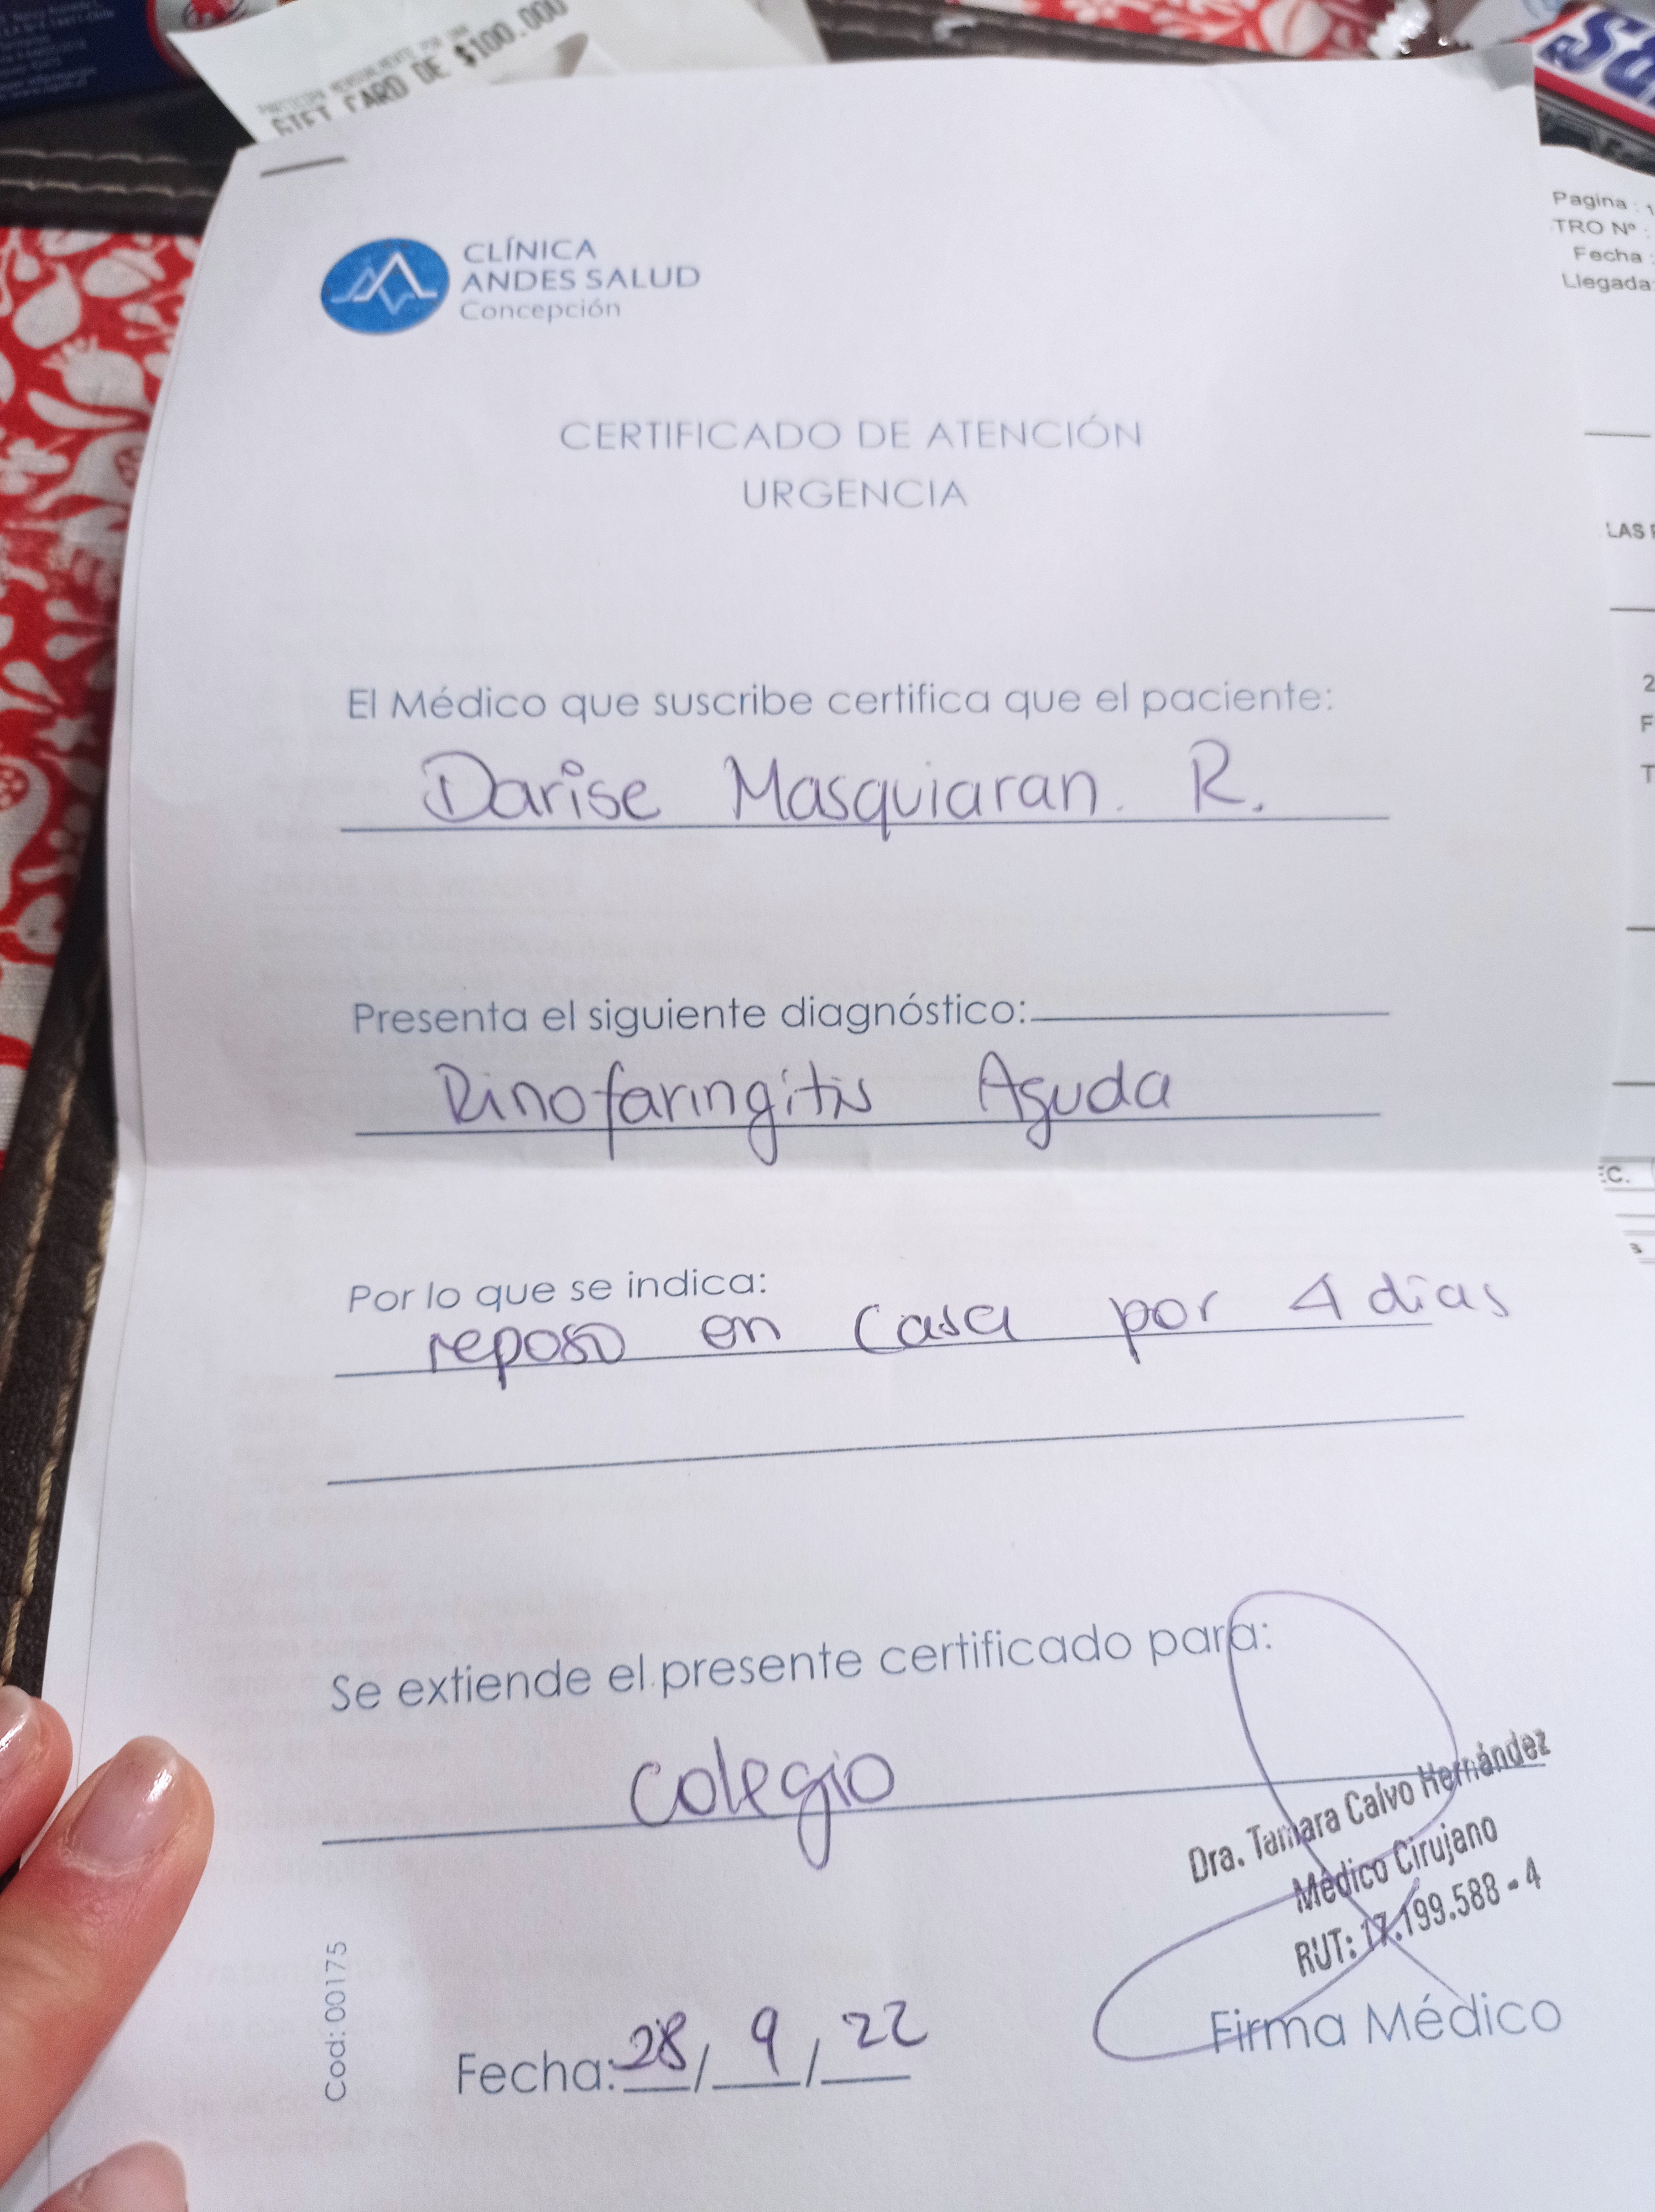 GIFT CARD DE $100.000
CLÍNICA
ANDES SALUD
Concepción
CERTIFICADO DE ATENCIÓN
URGENCIA
El Médico que suscribe certifica que el paciente:
Darise Masquiaran. R.
Presenta el siguiente diagnóstico:
Rinofaringitis Aguda
Por lo que se indica:
reposo en casa por 4 días
Se extiende el presente certificado para:
colegio
Dra. Tamara Calvo Hernández
Médico Cirujano
RUT: 17.199.588-4
Firma Médico
Fecha: 28/9/22
Cod: 00175
Pagina : 1
TRO Nº :
Fecha :
Llegada
LAS